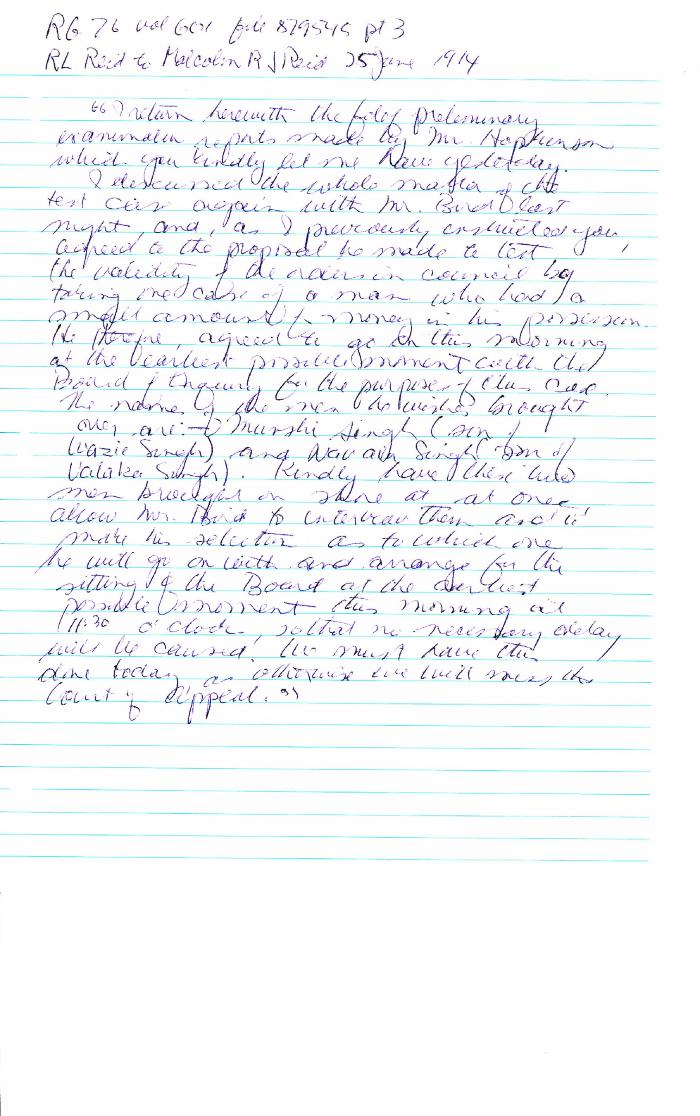 RG 76 vol 601 file 879545 pt 3
RL Reid to Malcolm R J Reid 25 June 1914
"I return herewith the file of preliminary
examination reports made by Mr. Hopkinson
which you kindly let me have yesterday.
I discussed the whole matter of the
test case again with Mr. Bird last
night, and, as I previously instructed you,
agreed to the proposal he made to test
the validity of the orders in council by
taking the case of a man who had a
small amount of money in his possession.
He therefore, agreed to go on this morning
at the earliest possible moment with the
Board of Enquiry for the purpose of this case.
The names of the men he wishes brought
over are:- Munshi Singh (son of
Wazir Singh) and Narain Singh (son of
Singh). Kindly have these two
men brought on shore at at once,
allow Mr. Bird to interview them and
make his selection as to which one
he will go on with and arrange for the
sitting of the Board at the earliest
possible moment this morning at
11:30 o'clock, so that no necessary delay
will be caused. We must have this
done today as otherwise we will miss the
Court of Appeal."